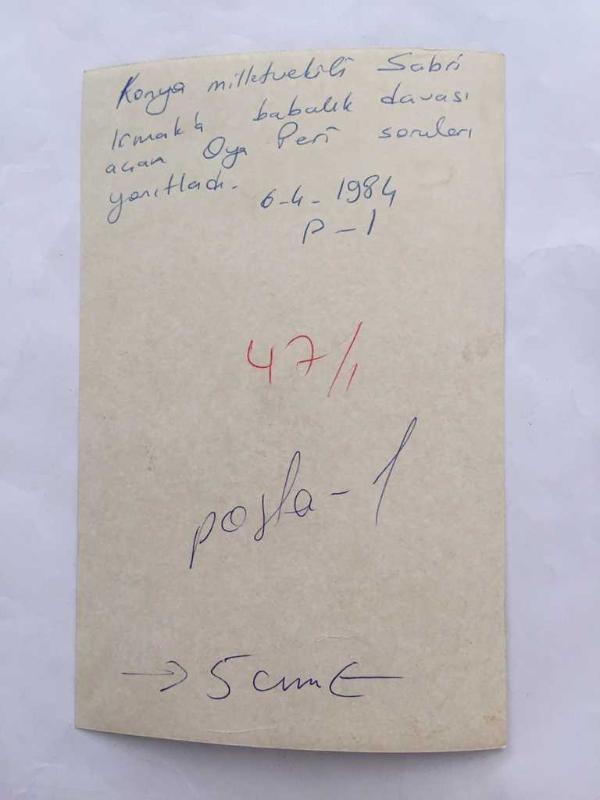 Konya milletvekili Sabri
Irmak'a babalık davası
açan Oya Peri soruları
yanıtladı.
6-4-1984
P-1
47/1
posta-1
→ 5 cm ←